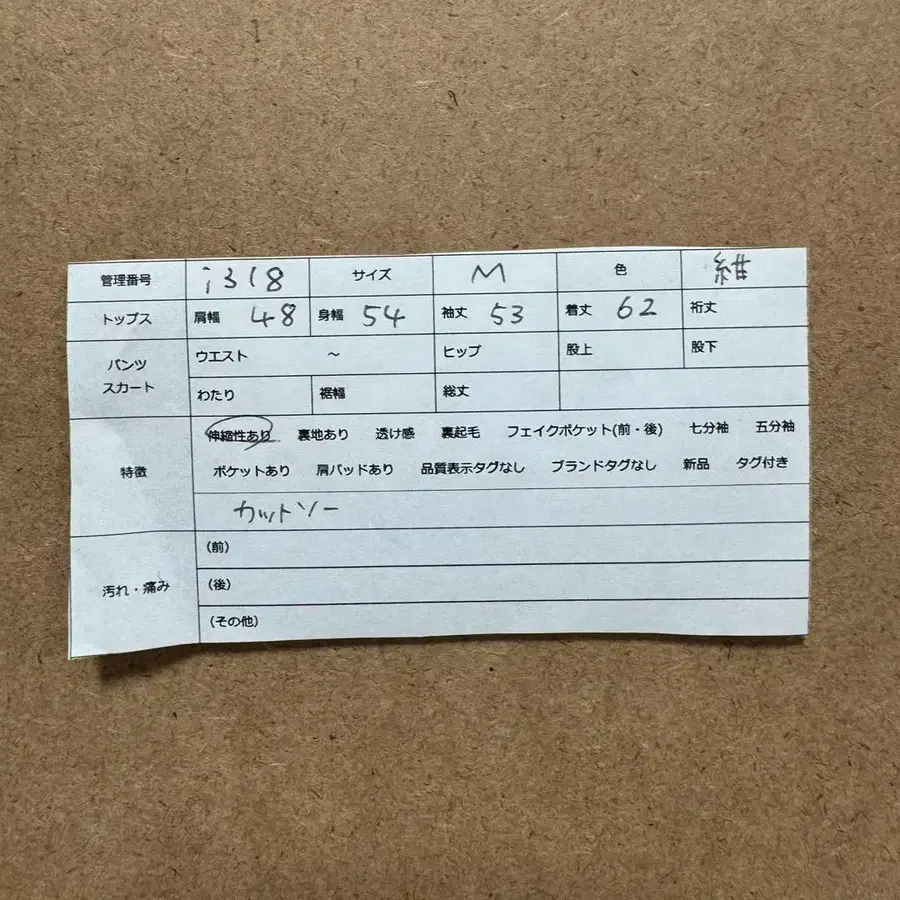 管理番号 i318 サイズ M 色 紺
トップス 肩幅 48 身幅 54 袖丈 53 着丈 62 裄丈
パンツ スカート ウエスト ～ ヒップ 股上 股下
わたり 裾幅 総丈
特徴 伸縮性あり 裏地あり 透け感 裏起毛 フェイクポケット(前・後) 七分袖 五分袖
ポケットあり 肩パッドあり 品質表示タグなし ブランドタグなし 新品 タグ付き
カットソー
汚れ・痛み (前)
(後)
(その他)